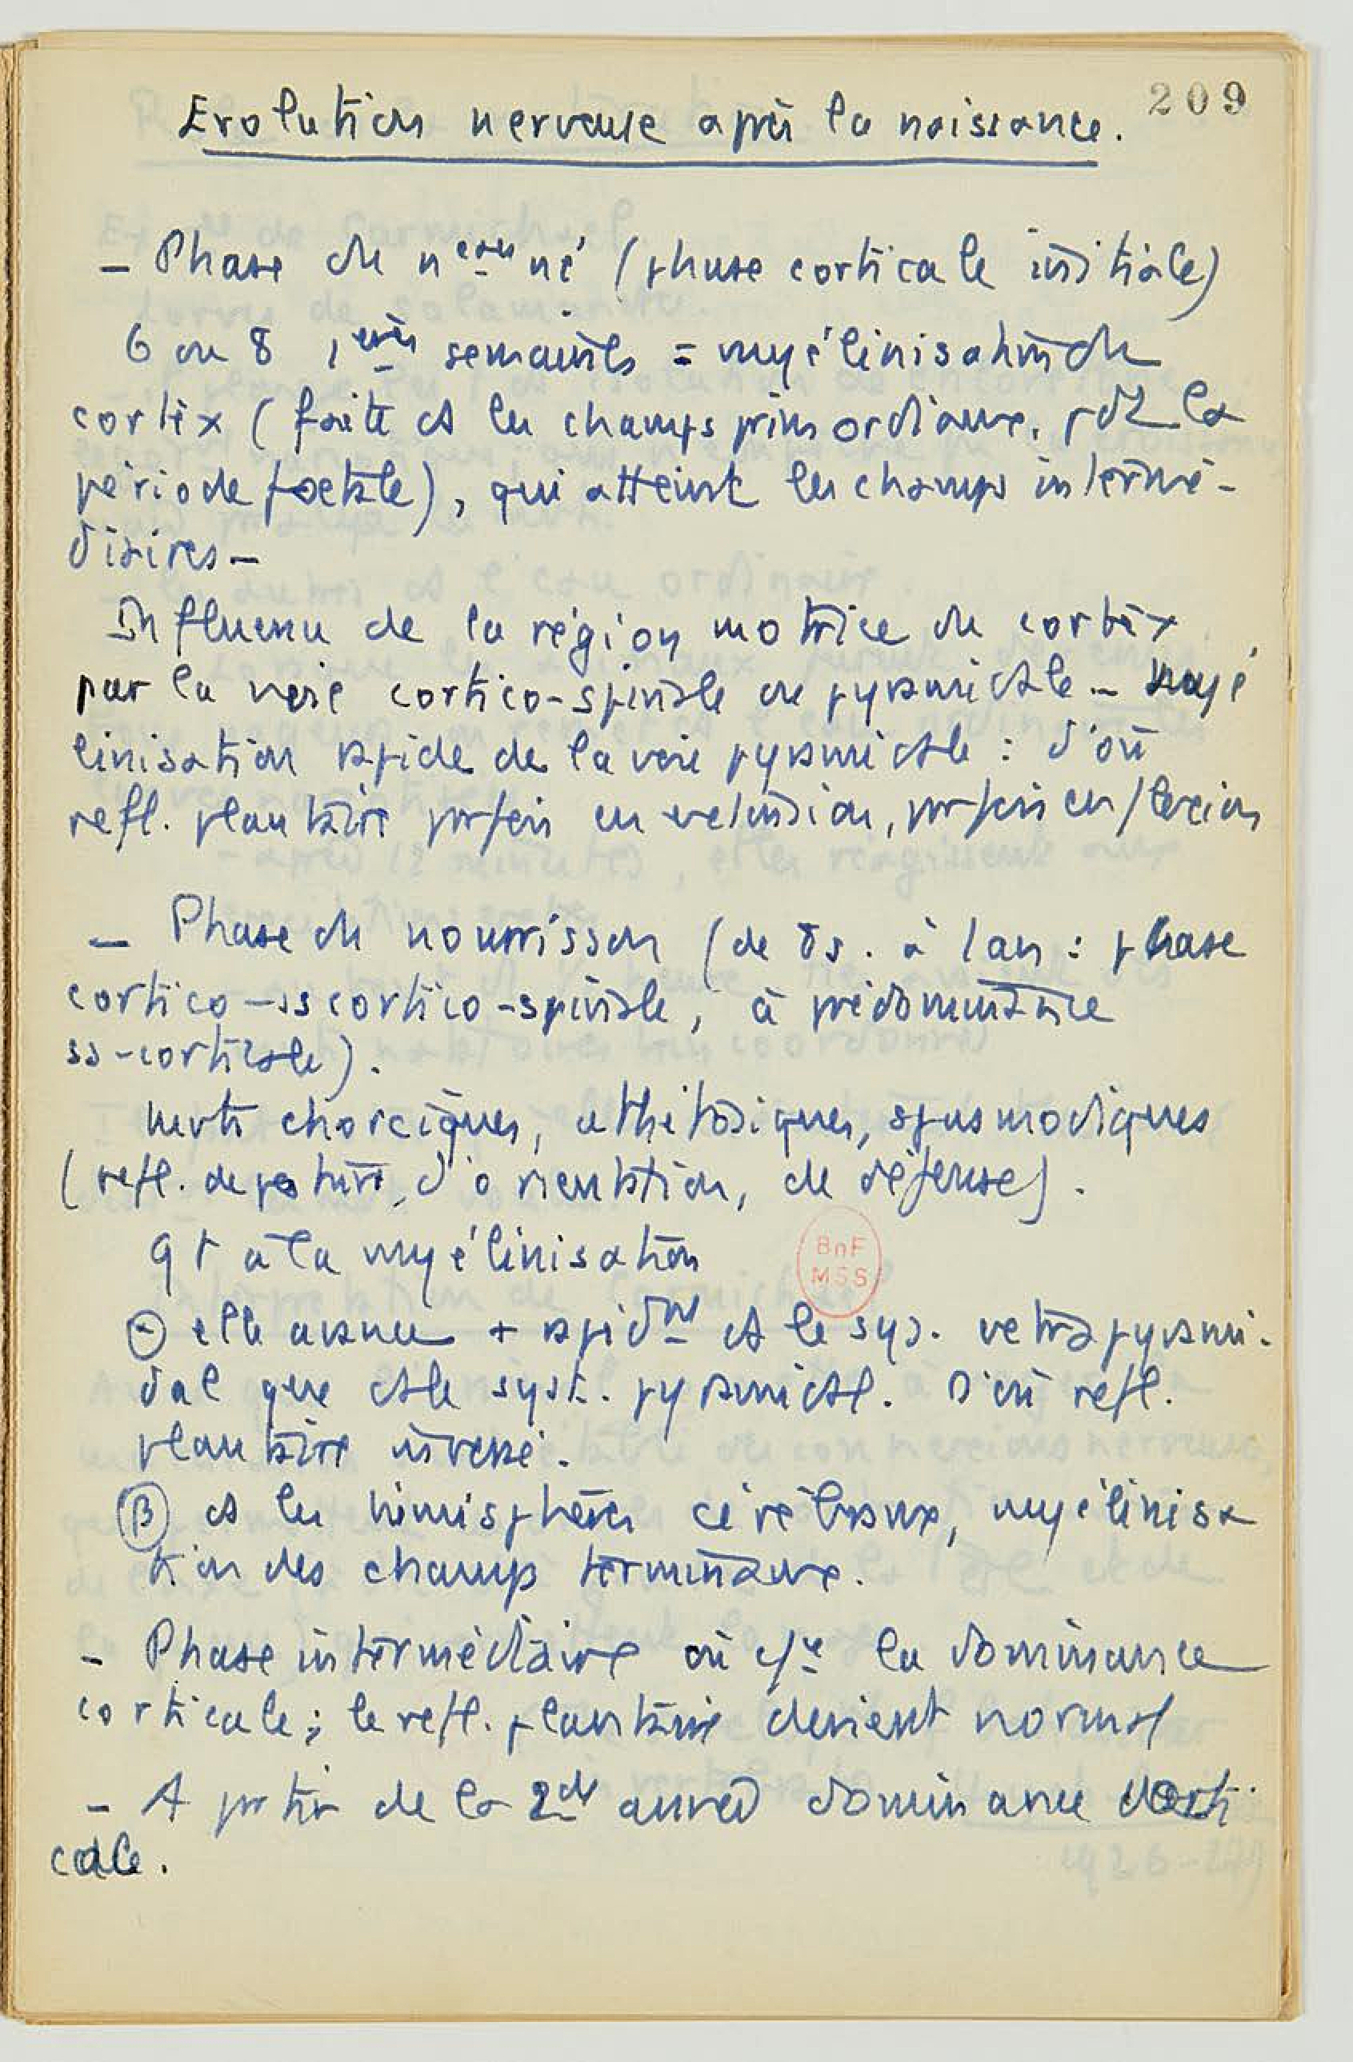 209
Evolution nerveuse après la naissance.
– Phase du nveau né (phase corticale initiale)
6 ou 8 1ères semaines = myélinisation du
cortex (faite ds les champs primordiaux, pdt la
période foetale), qui atteint les champs intermé-
diaires –
Influence de la région motrice du cortex
par la voie cortico-spinale ou pyramidale – myé
linisation rapide de la voie pyramidale : d'où
refl. plantaire parfois en extension, parfois en flexion
– Phase du nourrisson (de 8s. à 1 an : phase
cortico-ss cortico-spinale, à prédominance
ss-corticale).
mvts choréiques, athétosiques, spasmodiques
(refl. de posture, d'orientation, de défense).
qt à la myélinisation
elle avance + rapidmt ds le sys. extrapyrami-
dal que ds le syst. pyramidal. D'où refl.
plantaire inversé.
BnF
MSS
(B) ds les hémisphères cérébraux, myélinisa
tion des champs terminaux.
– Phase intermédiaire où la dominance
corticale ; le refl. plantaire devient normal
– A partir de la 2de année dominance corti
cale.